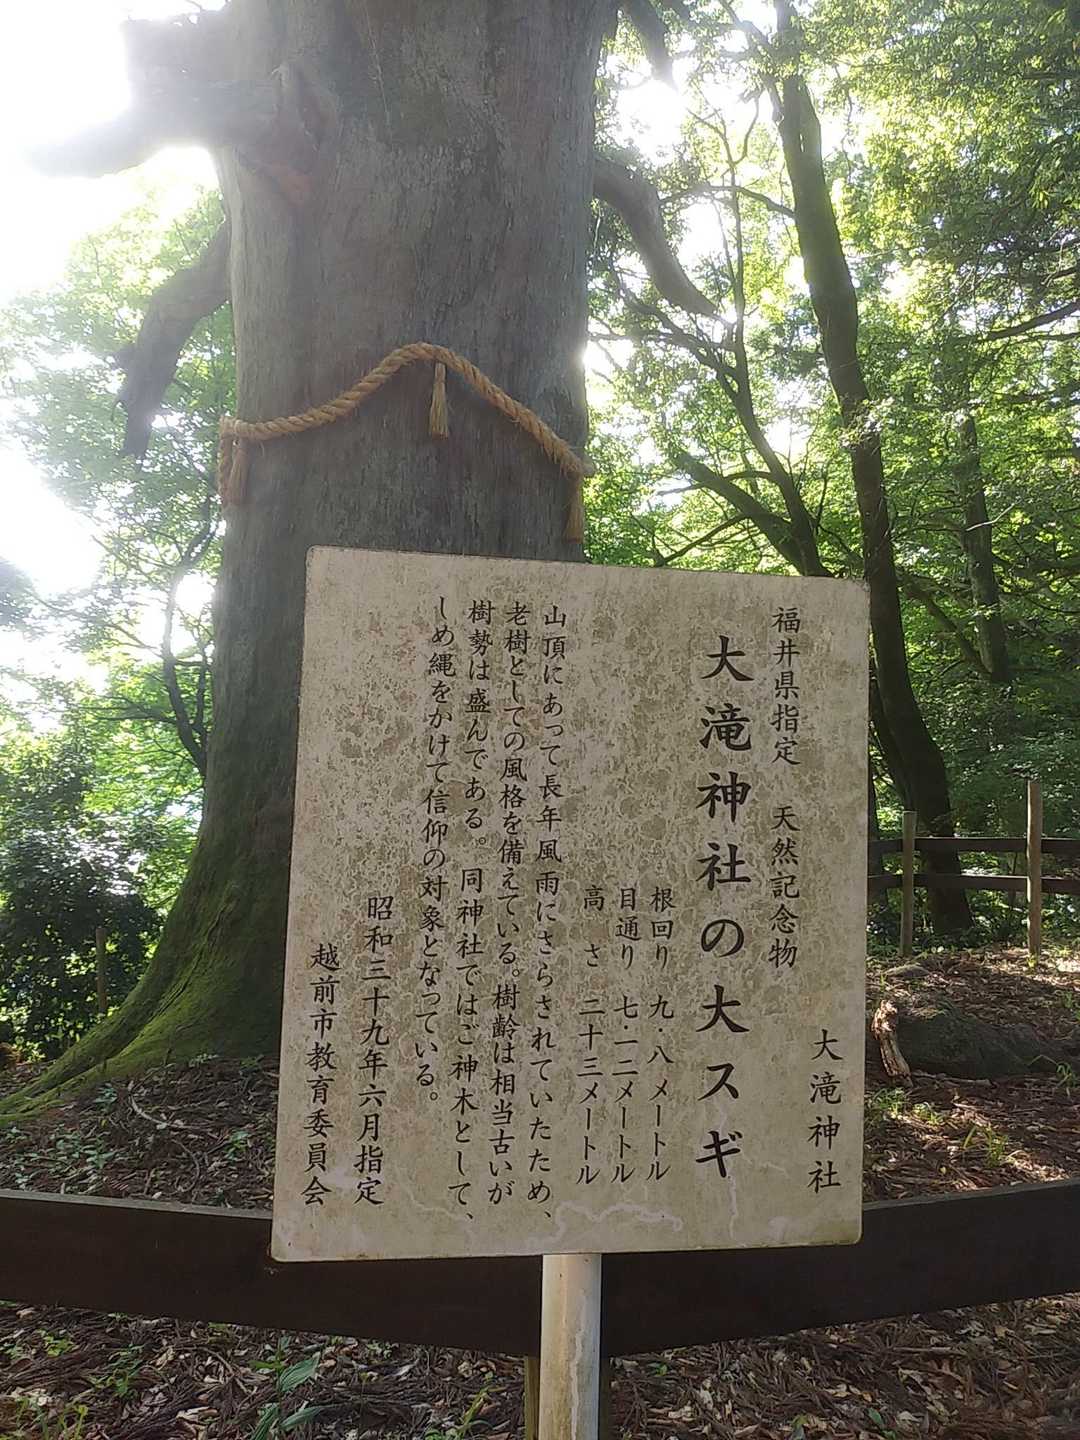 福井県指定　天然記念物
大滝神社
大滝神社の大スギ
根回り　九・八メートル
目通り　七・一二メートル
高　さ　二十三メートル
山頂にあって長年風雨にさらされていたため、
老樹としての風格を備えている。樹齢は相当古いが
樹勢は盛んである。同神社ではご神木として、
しめ縄をかけて信仰の対象となっている。
昭和三十九年六月指定
越前市教育委員会